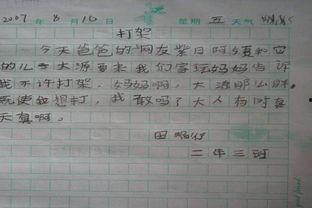 2007年8月10日 星期五 天气
打架
今天爸爸的网友紫日阿姨和她
的儿子大源要来我们家玩妈妈告诉
我不许打架,妈妈啊,大源那么胖,
就使我想打,我敢吗?大人有时真
天真啊。
田
二年三班